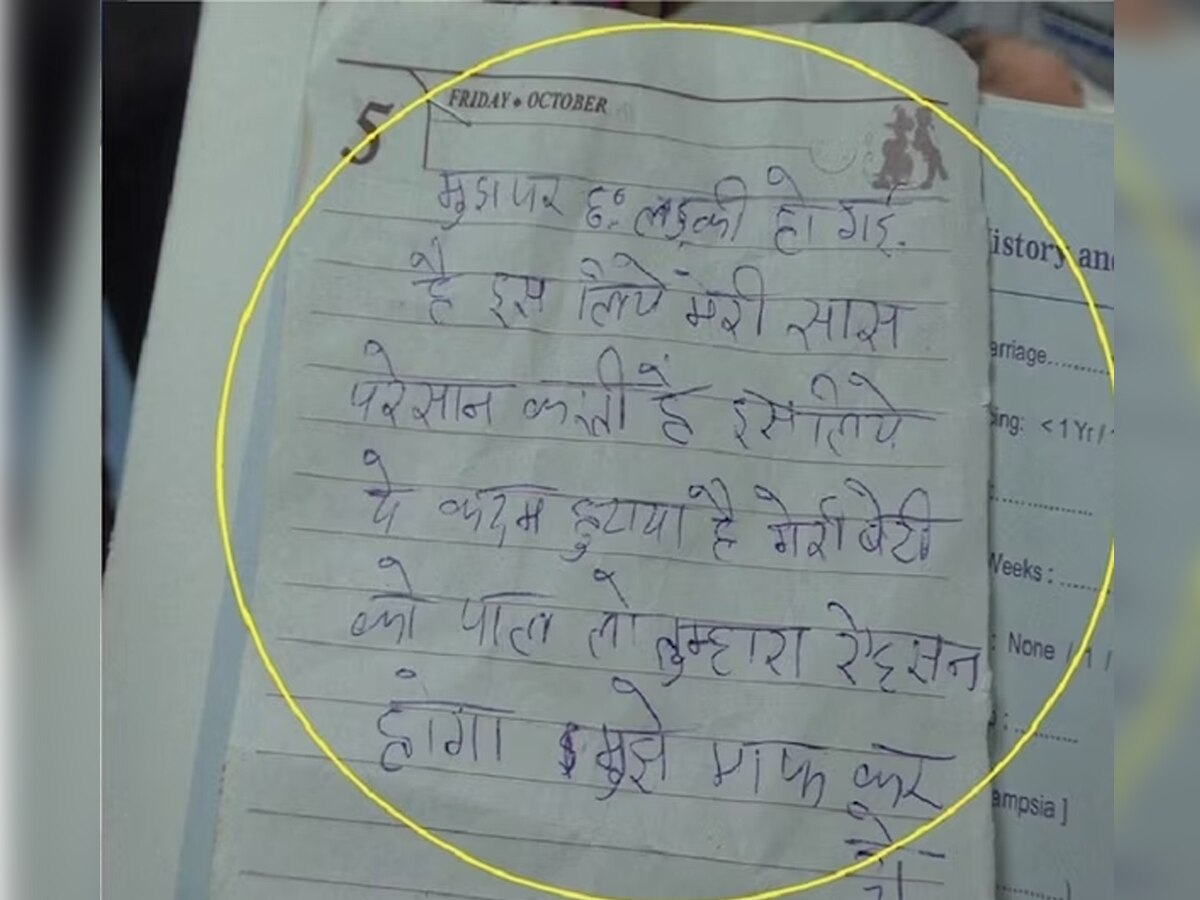 5
FRIDAY • OCTOBER
मुझ पर छः लड़की हो गई.
है इस लिये मेरी सास
परेसान करती है इसलिये
ये कदम हुटाया है मेरी बेटी
को पाल लो तुम्हारा
होगा मुझे माफ कर
दो
istory and
arriage..........
ing: < 1 Yr /
Weeks : ......
: None / 1 /
ampsia ]